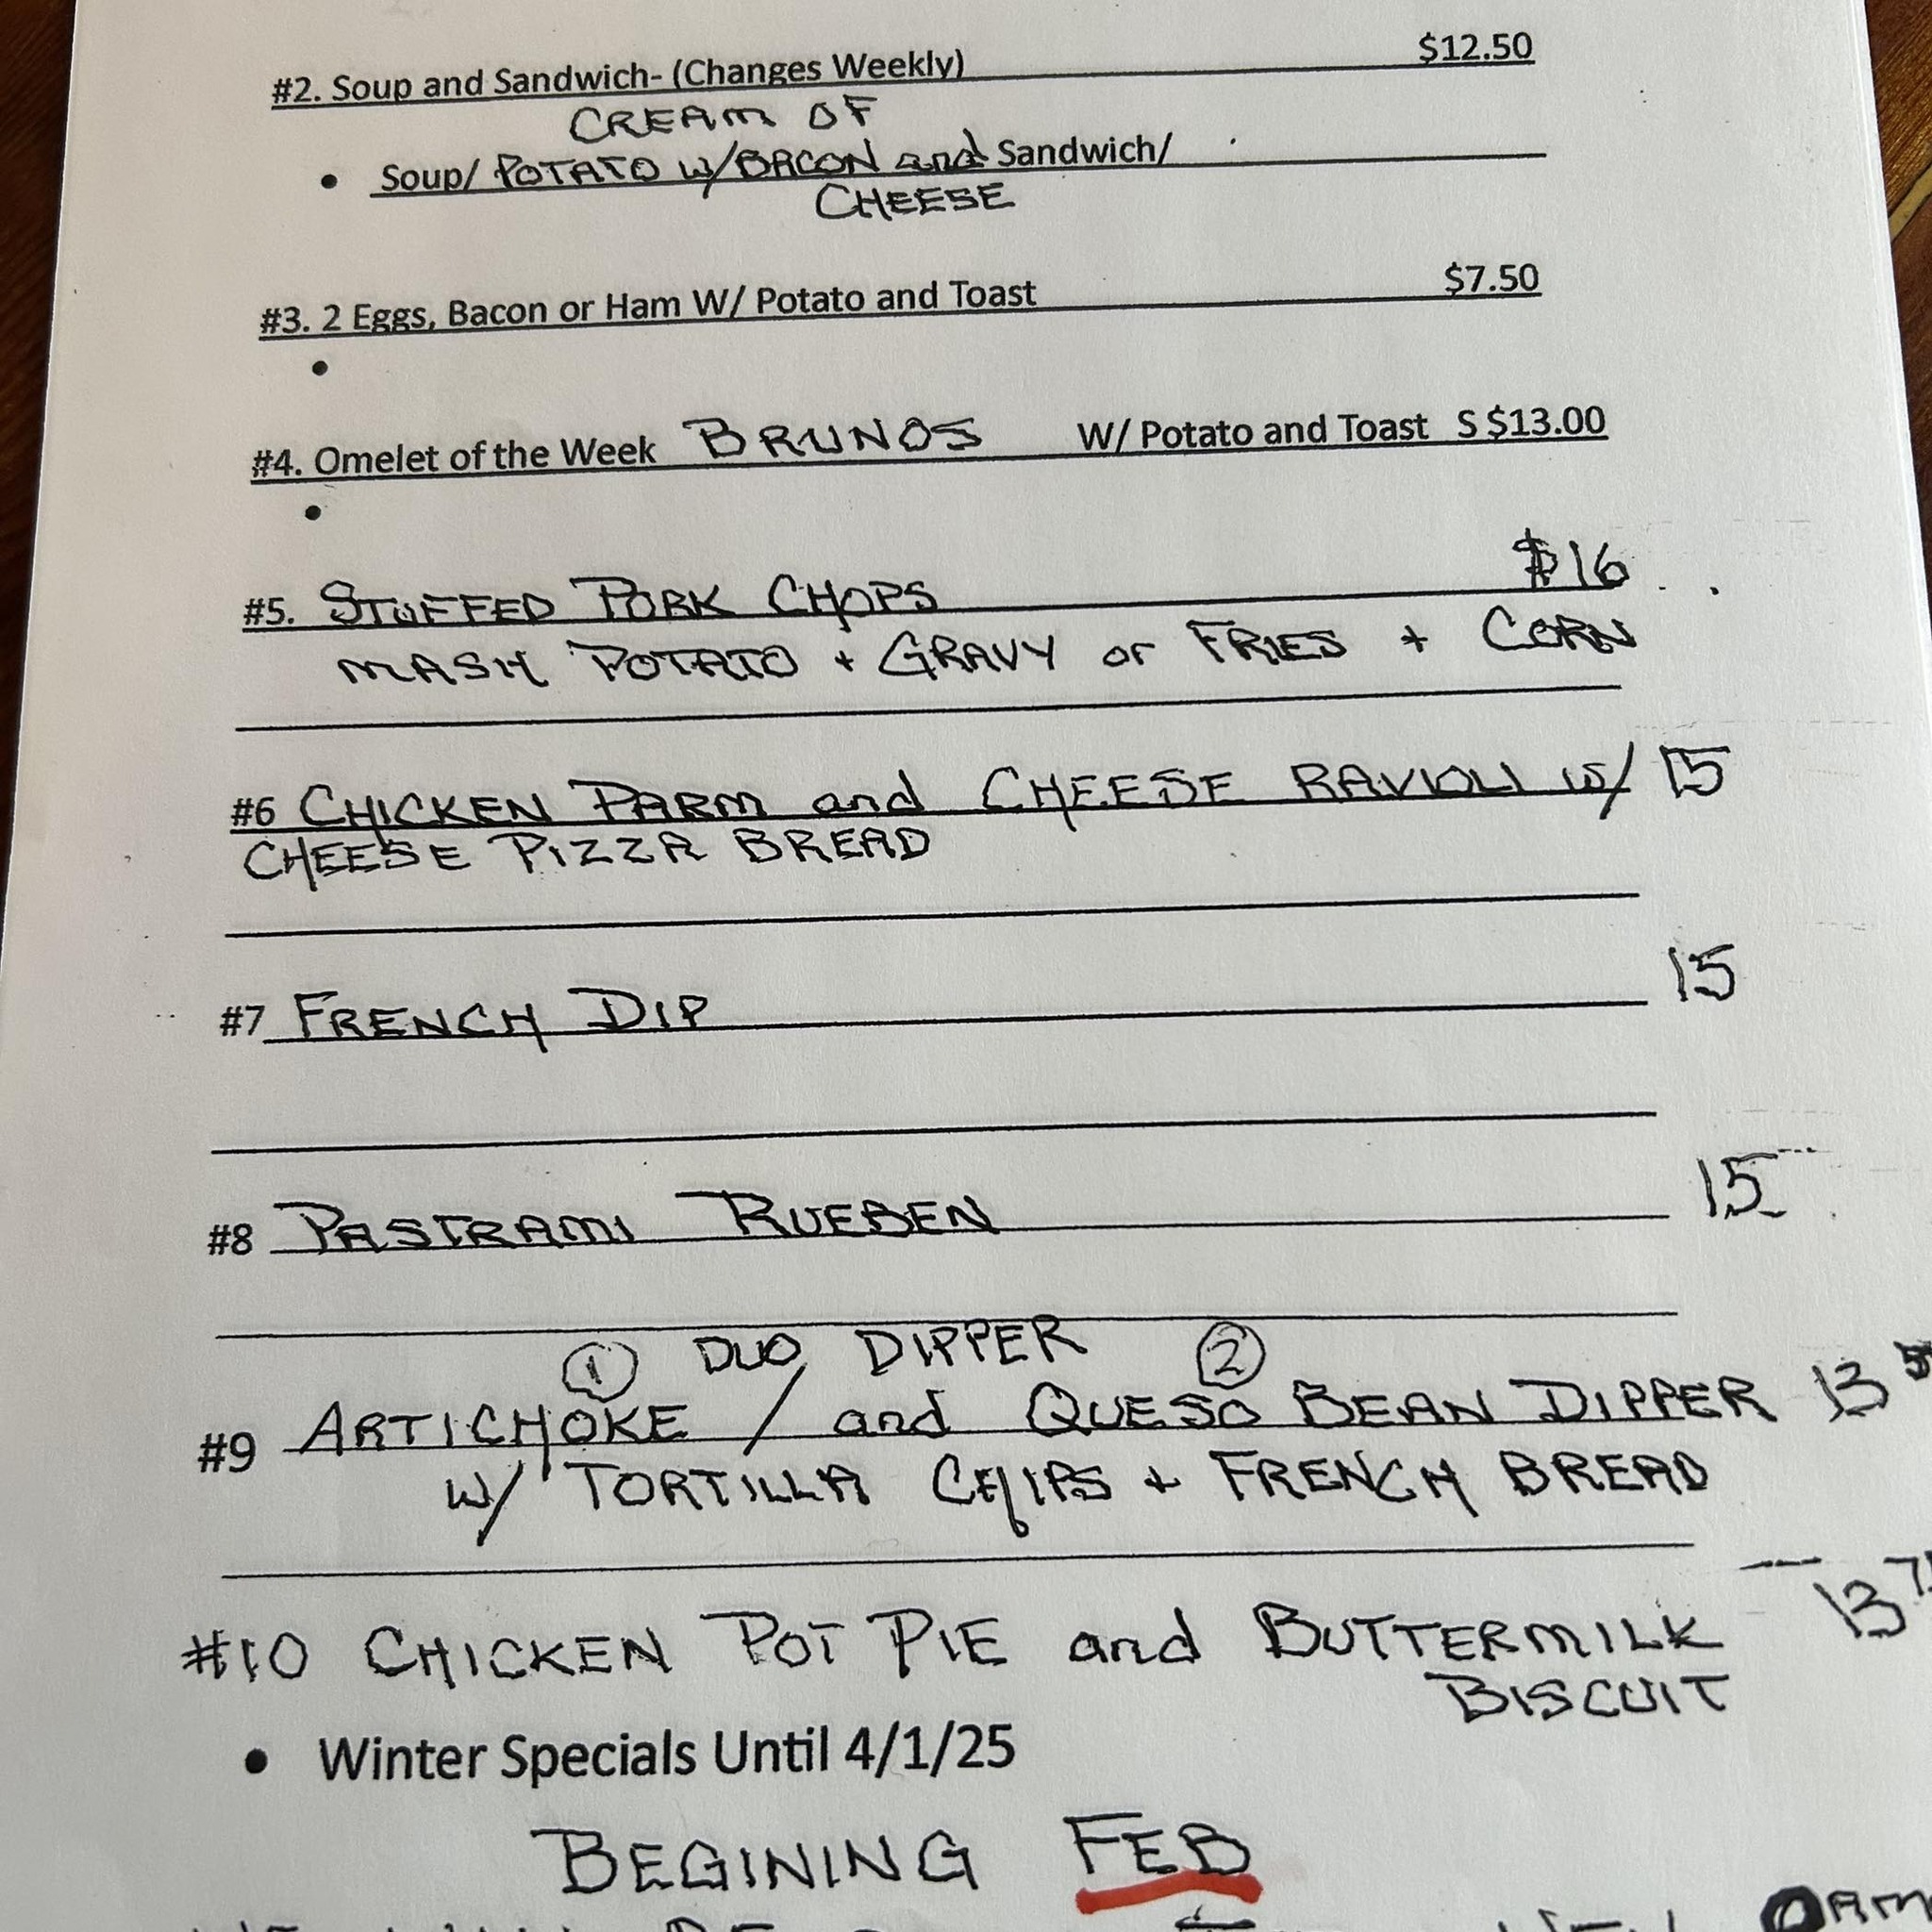 #2. Soup and Sandwich- (Changes Weekly) $12.50
CREAM OF
• Soup/ POTATO W/BACON and Sandwich/
CHEESE
#3. 2 Eggs, Bacon or Ham W/ Potato and Toast $7.50
•
#4. Omelet of the Week BRUNOS W/ Potato and Toast S $13.00
•
#5. STUFFED PORK CHOPS $16
MASH POTATO + GRAVY or FRIES + CORN
#6 CHICKEN PARM and CHEESE RAVIOLI W/ 15
CHEESE PIZZA BREAD
#7 FRENCH DIP 15
#8 PASTRAMI RUEBEN 15
① DUO DIPPER ②
#9 ARTICHOKE / and QUESO BEAN DIPPER 13
W/ TORTILLA CHIPS + FRENCH BREAD
#10 CHICKEN POT PIE and BUTTERMILK 13
BISCUIT
• Winter Specials Until 4/1/25
BEGINING FEB